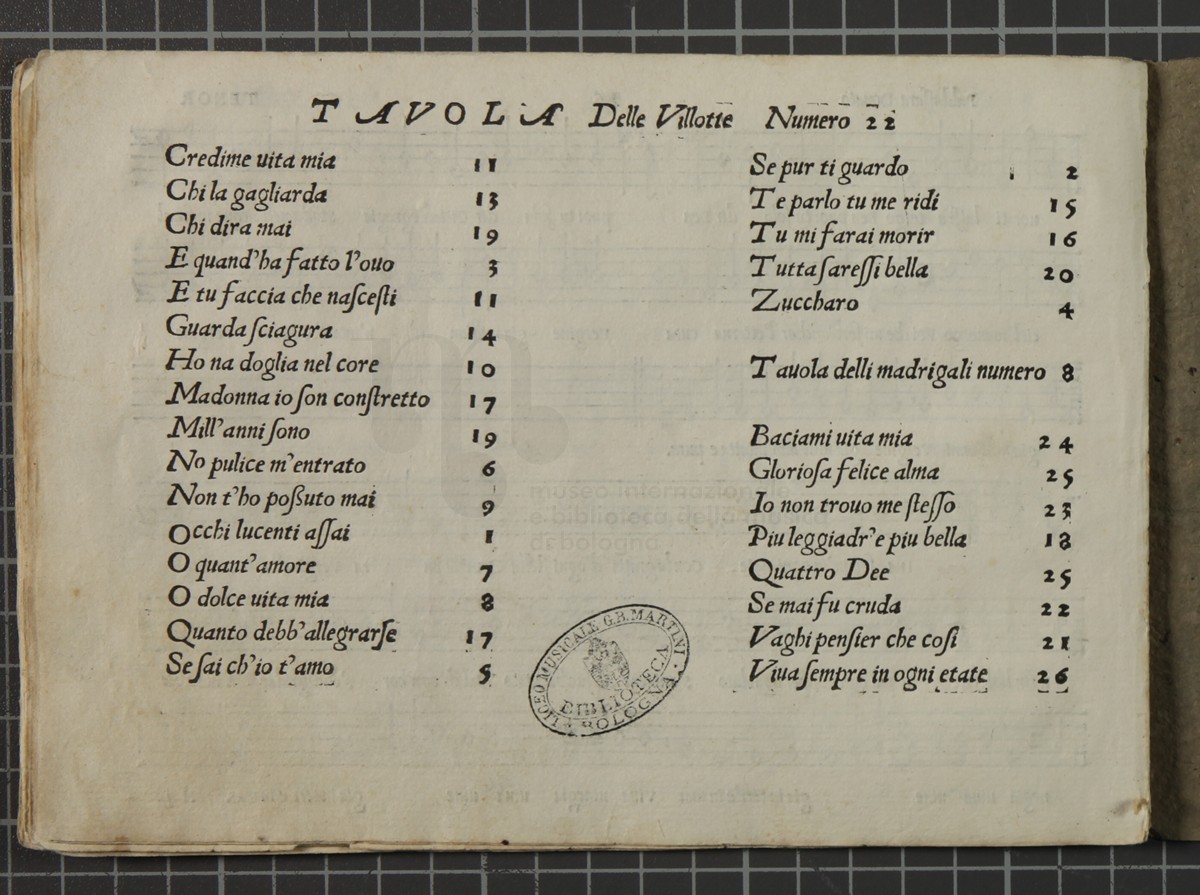 TAVOLA Delle Villotte Numero 22
Credime uita mia 11
Chi la gagliarda 13
Chi dira mai 19
E quand'ha fatto l'ouo 3
E tu faccia che naſceſti 11
Guarda ſciagura 14
Ho na doglia nel core 10
Madonna io ſon conſtretto 17
Mill'anni ſono 19
No pulice m'entrato 6
Non t'ho poßuto mai 9
Occhi lucenti aſſai 1
O quant'amore 7
O dolce uita mia 8
Quanto debb'allegrarſe 17
Se ſai ch'io t'amo 5
Se pur ti guardo 2
Te parlo tu me ridi 15
Tu mi farai morir 16
Tutta ſareſſi bella 20
Zuccharo 4
Tauola delli madrigali numero 8
Baciami uita mia 24
Glorioſa felice alma 25
Io non trouo me ſteſſo 23
Piu leggiadr'e piu bella 18
Quattro Dee 25
Se mai fu cruda 22
Vaghi penſier che coſi 21
Viua ſempre in ogni etate 26
LICEO MUSICALE G.B. MARTINI
BIBLIOTECA
BOLOGNA
museo internazionale
e biblioteca della musica
di bologna